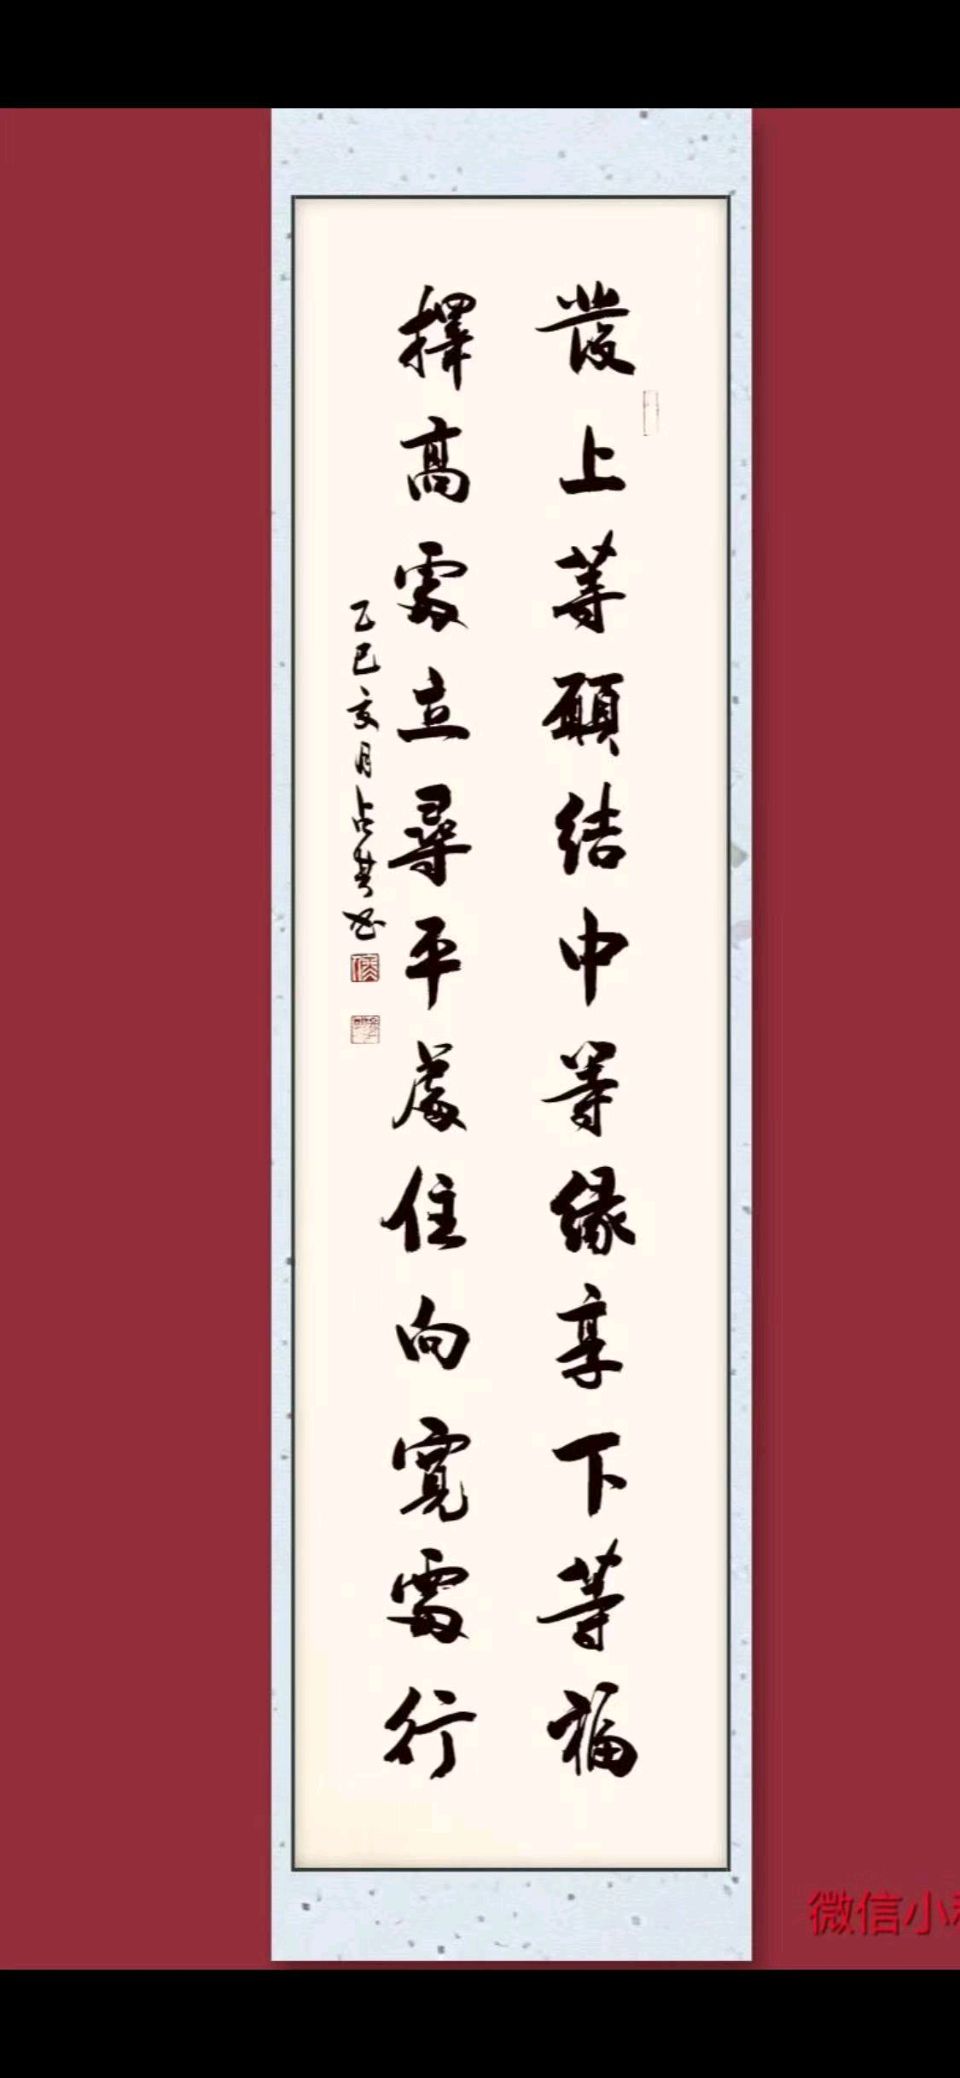 發上等願結中等緣享下等福
擇高處立尋平處住向寬處行
乙巳亥月占其书
微信小